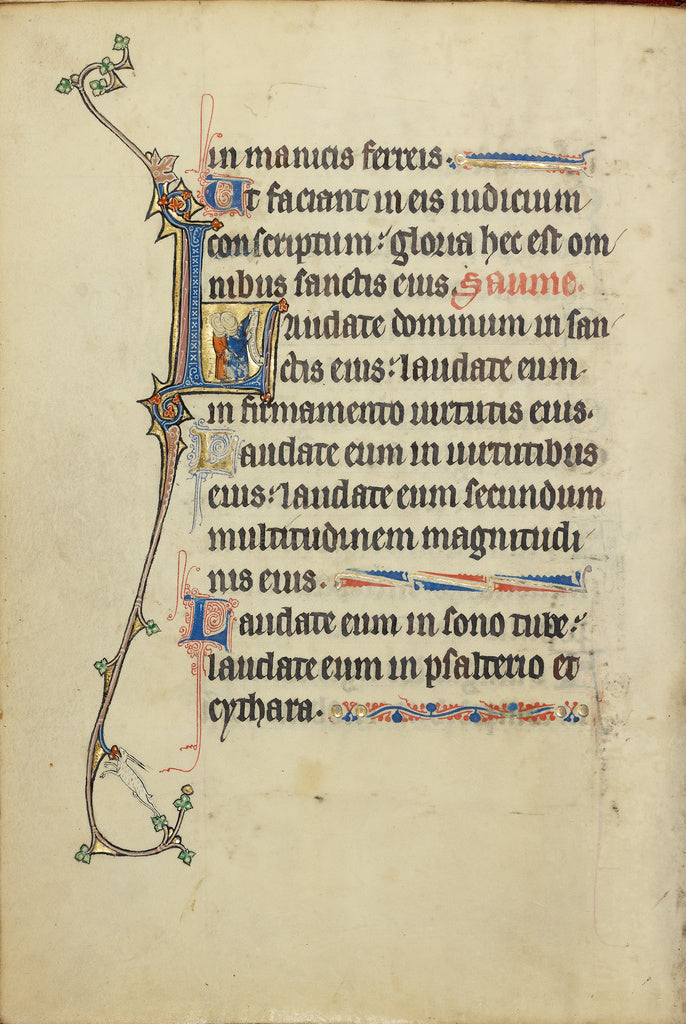 in manicis ferreis.
Ut faciant in eis iudicium
conscriptum: gloria hec est om
nibus sanctis eius. Saume.
Laudate dominum in san
ctis eius: laudate eum
in firmamento uirtutis eius.
Laudate eum in uirtutibus
eius: laudate eum secundum
multitudinem magnitudi
nis eius.
Laudate eum in sono tube:
laudate eum in psalterio et
cythara.